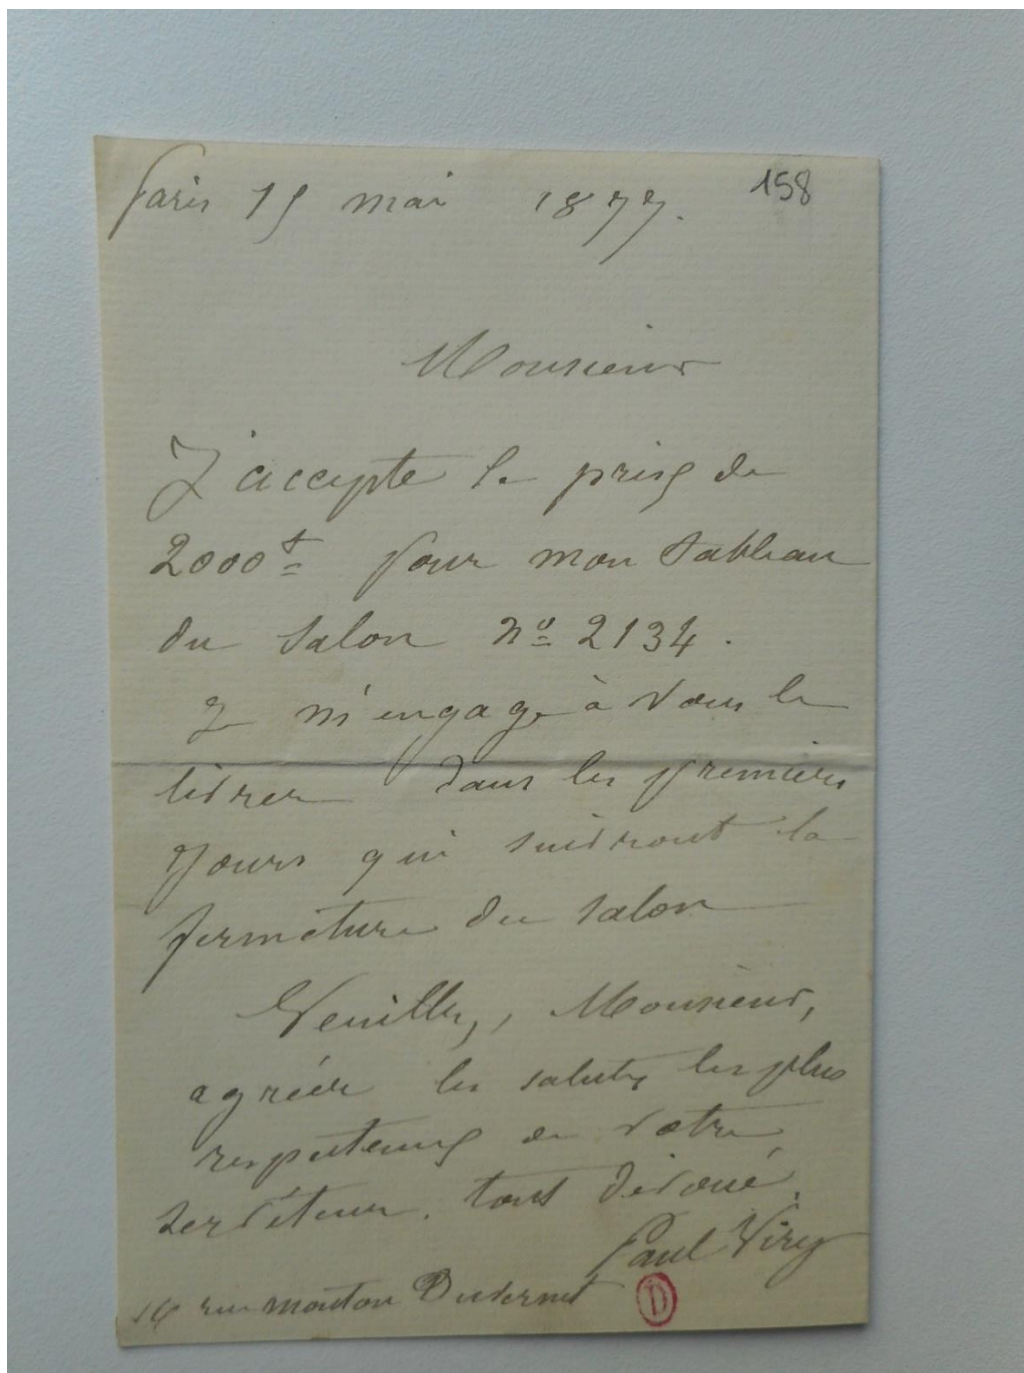 Paris 15 mai 1877.
158
Monsieur
J'accepte le prix de
2000f pour mon tableau
du Salon No 2134.
Je m'engage à vous le
livrer dans les premiers
jours qui suivront la
fermeture du salon
Veuillez, Monsieur,
agréer les saluts les plus
respectueux de votre
serviteur. tout dévoué.
Paul Viry
rue mouton Duvernet
D